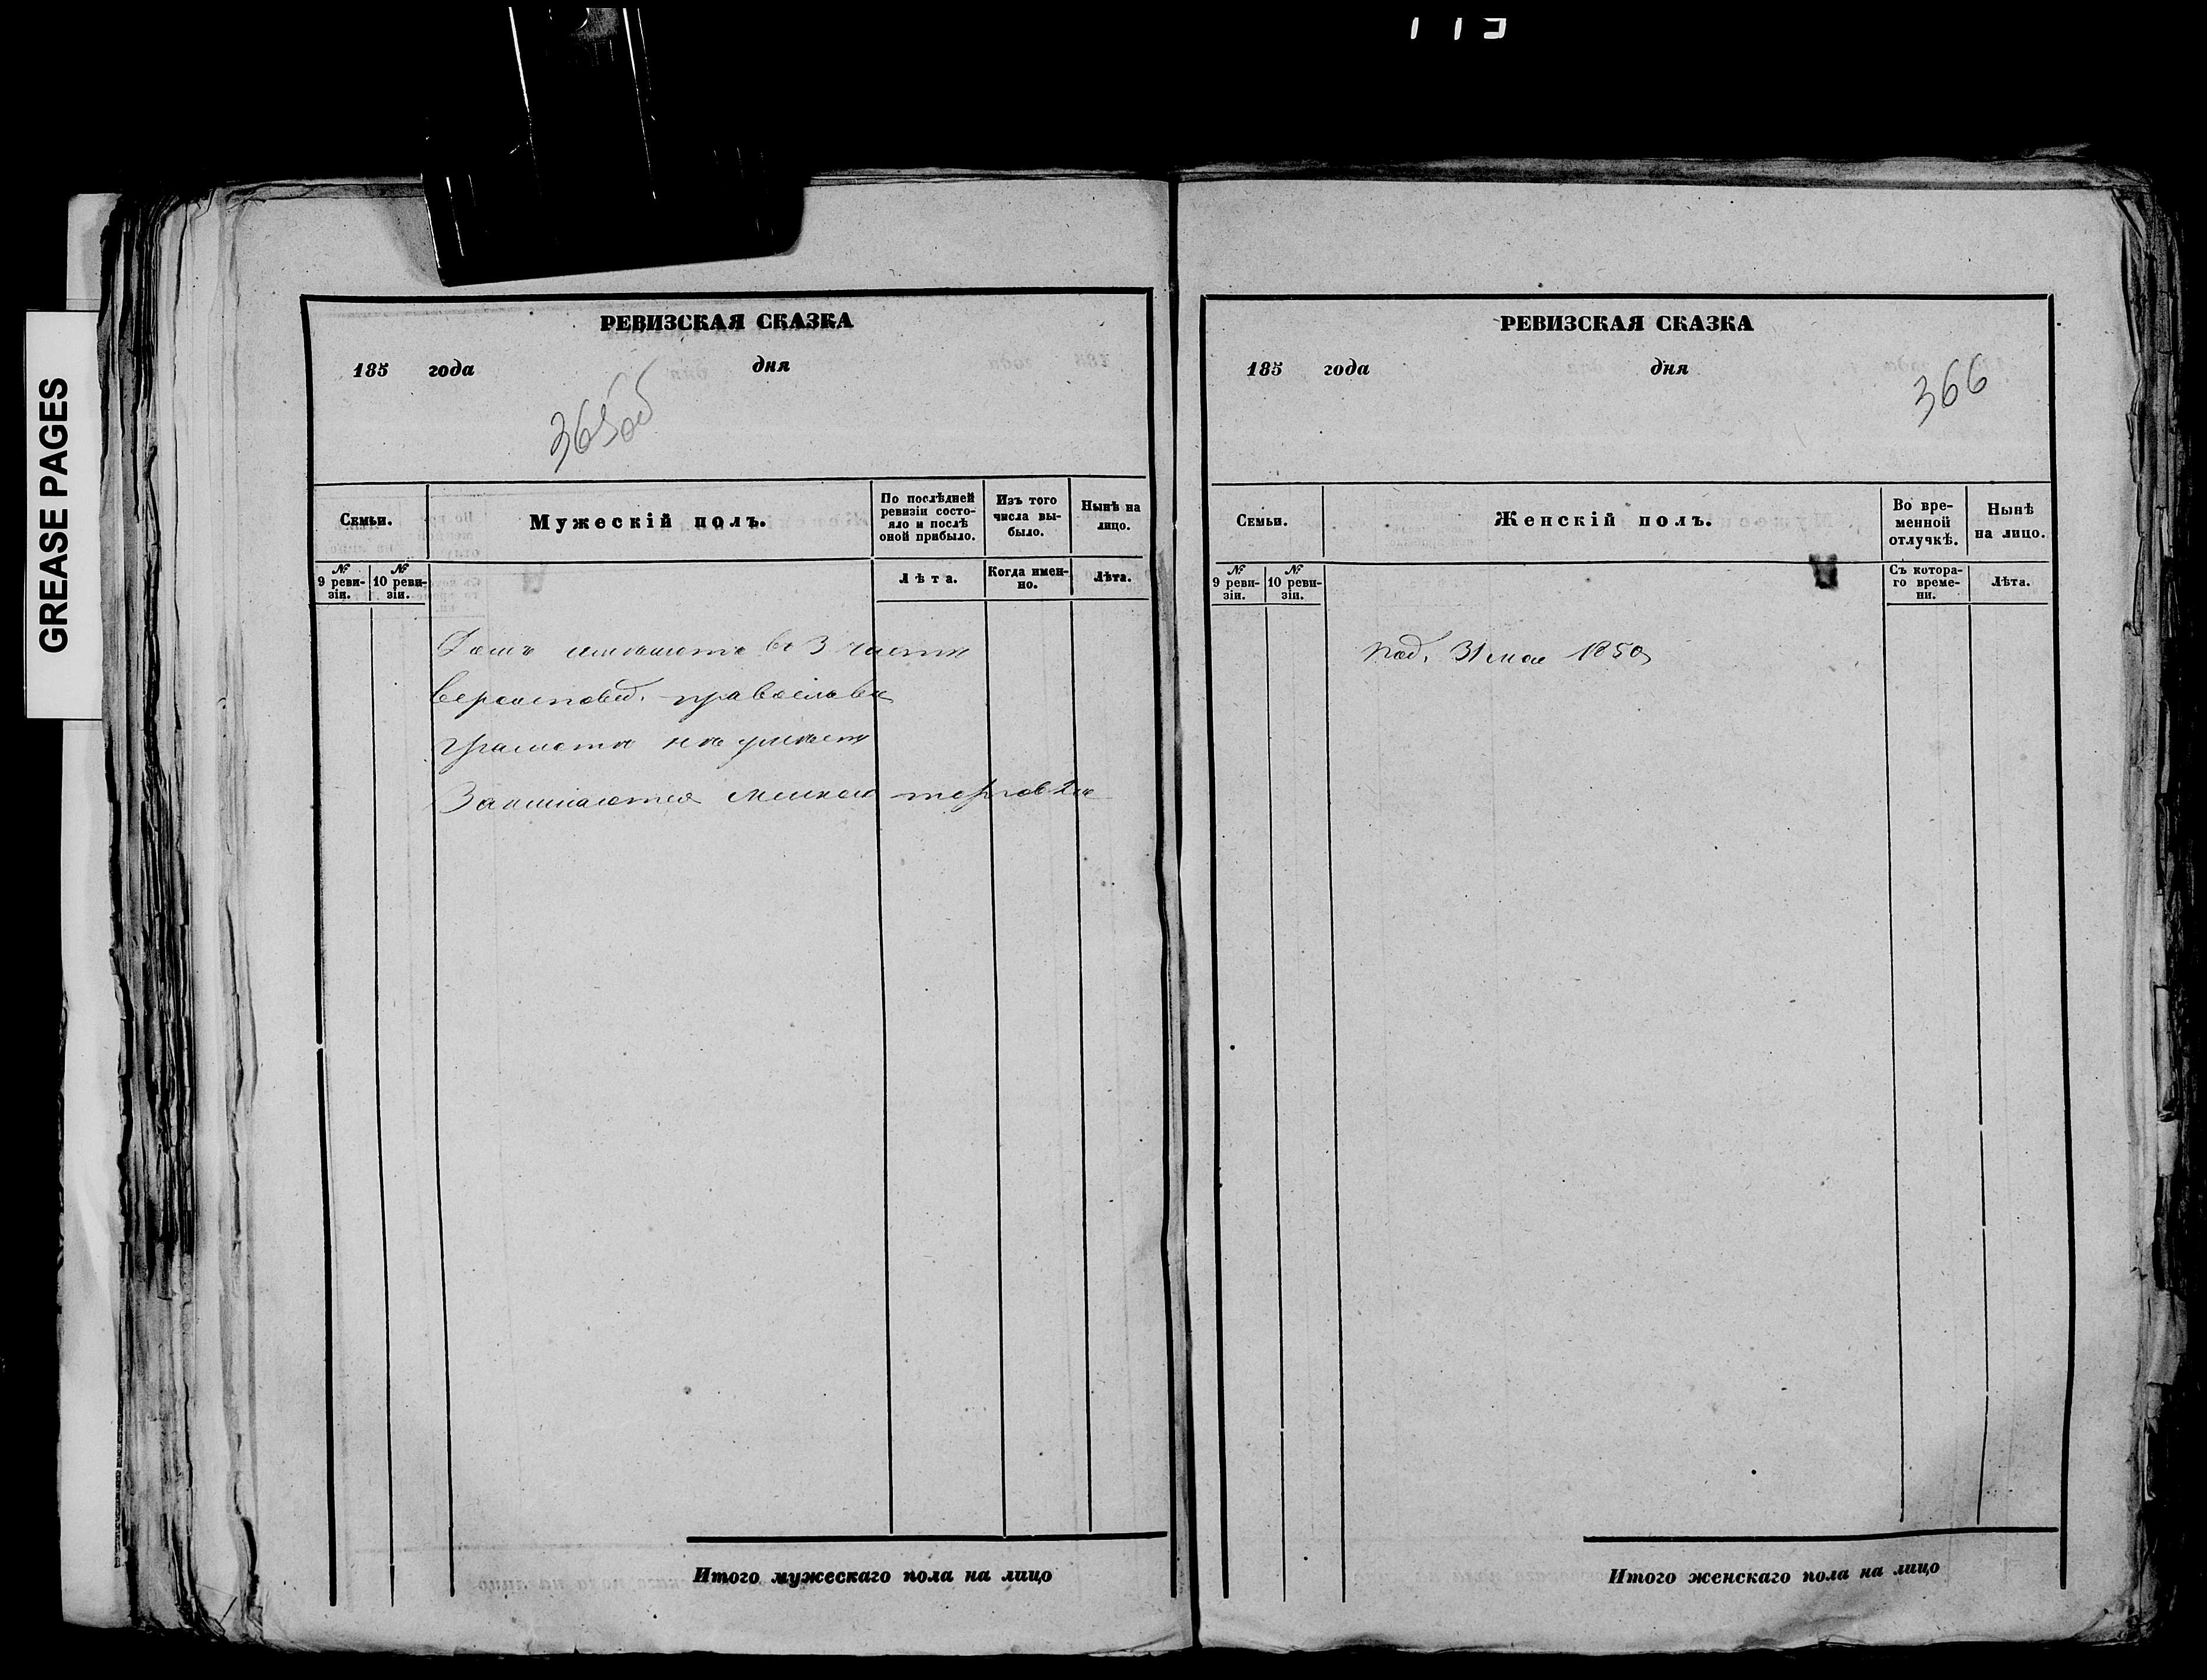 GREASE PAGES
РЕВИЗСКАЯ СКАЗКА
185 года дня
365об
Семьи.
Мужескій полъ.
По послѣдней ревизіи состо-
яло и послѣ
оной прибыло.
Изъ того
числа вы-
было.
Нынѣ на
лицо.
№
9 реви-
зіи.
№
10 реви-
зіи.
Лѣта.
Когда имен-
но.
Лѣта.
Домъ имѣютъ во 3 части
вероисповед. православн
грамоти не умѣетъ
Занимается мелкою торговлю
Итого мужескаго пола на лицо
РЕВИЗСКАЯ СКАЗКА
185 года дня
366
Семьи.
Женскій полъ.
Во вре-
менной
отлучкѣ.
Нынѣ
на лицо.
№
9 реви-
зіи.
№
10 реви-
зіи.
Съ котора-
го време-
ни.
Лѣта.
под. 31 мая 1850
Итого женскаго пола на лицо